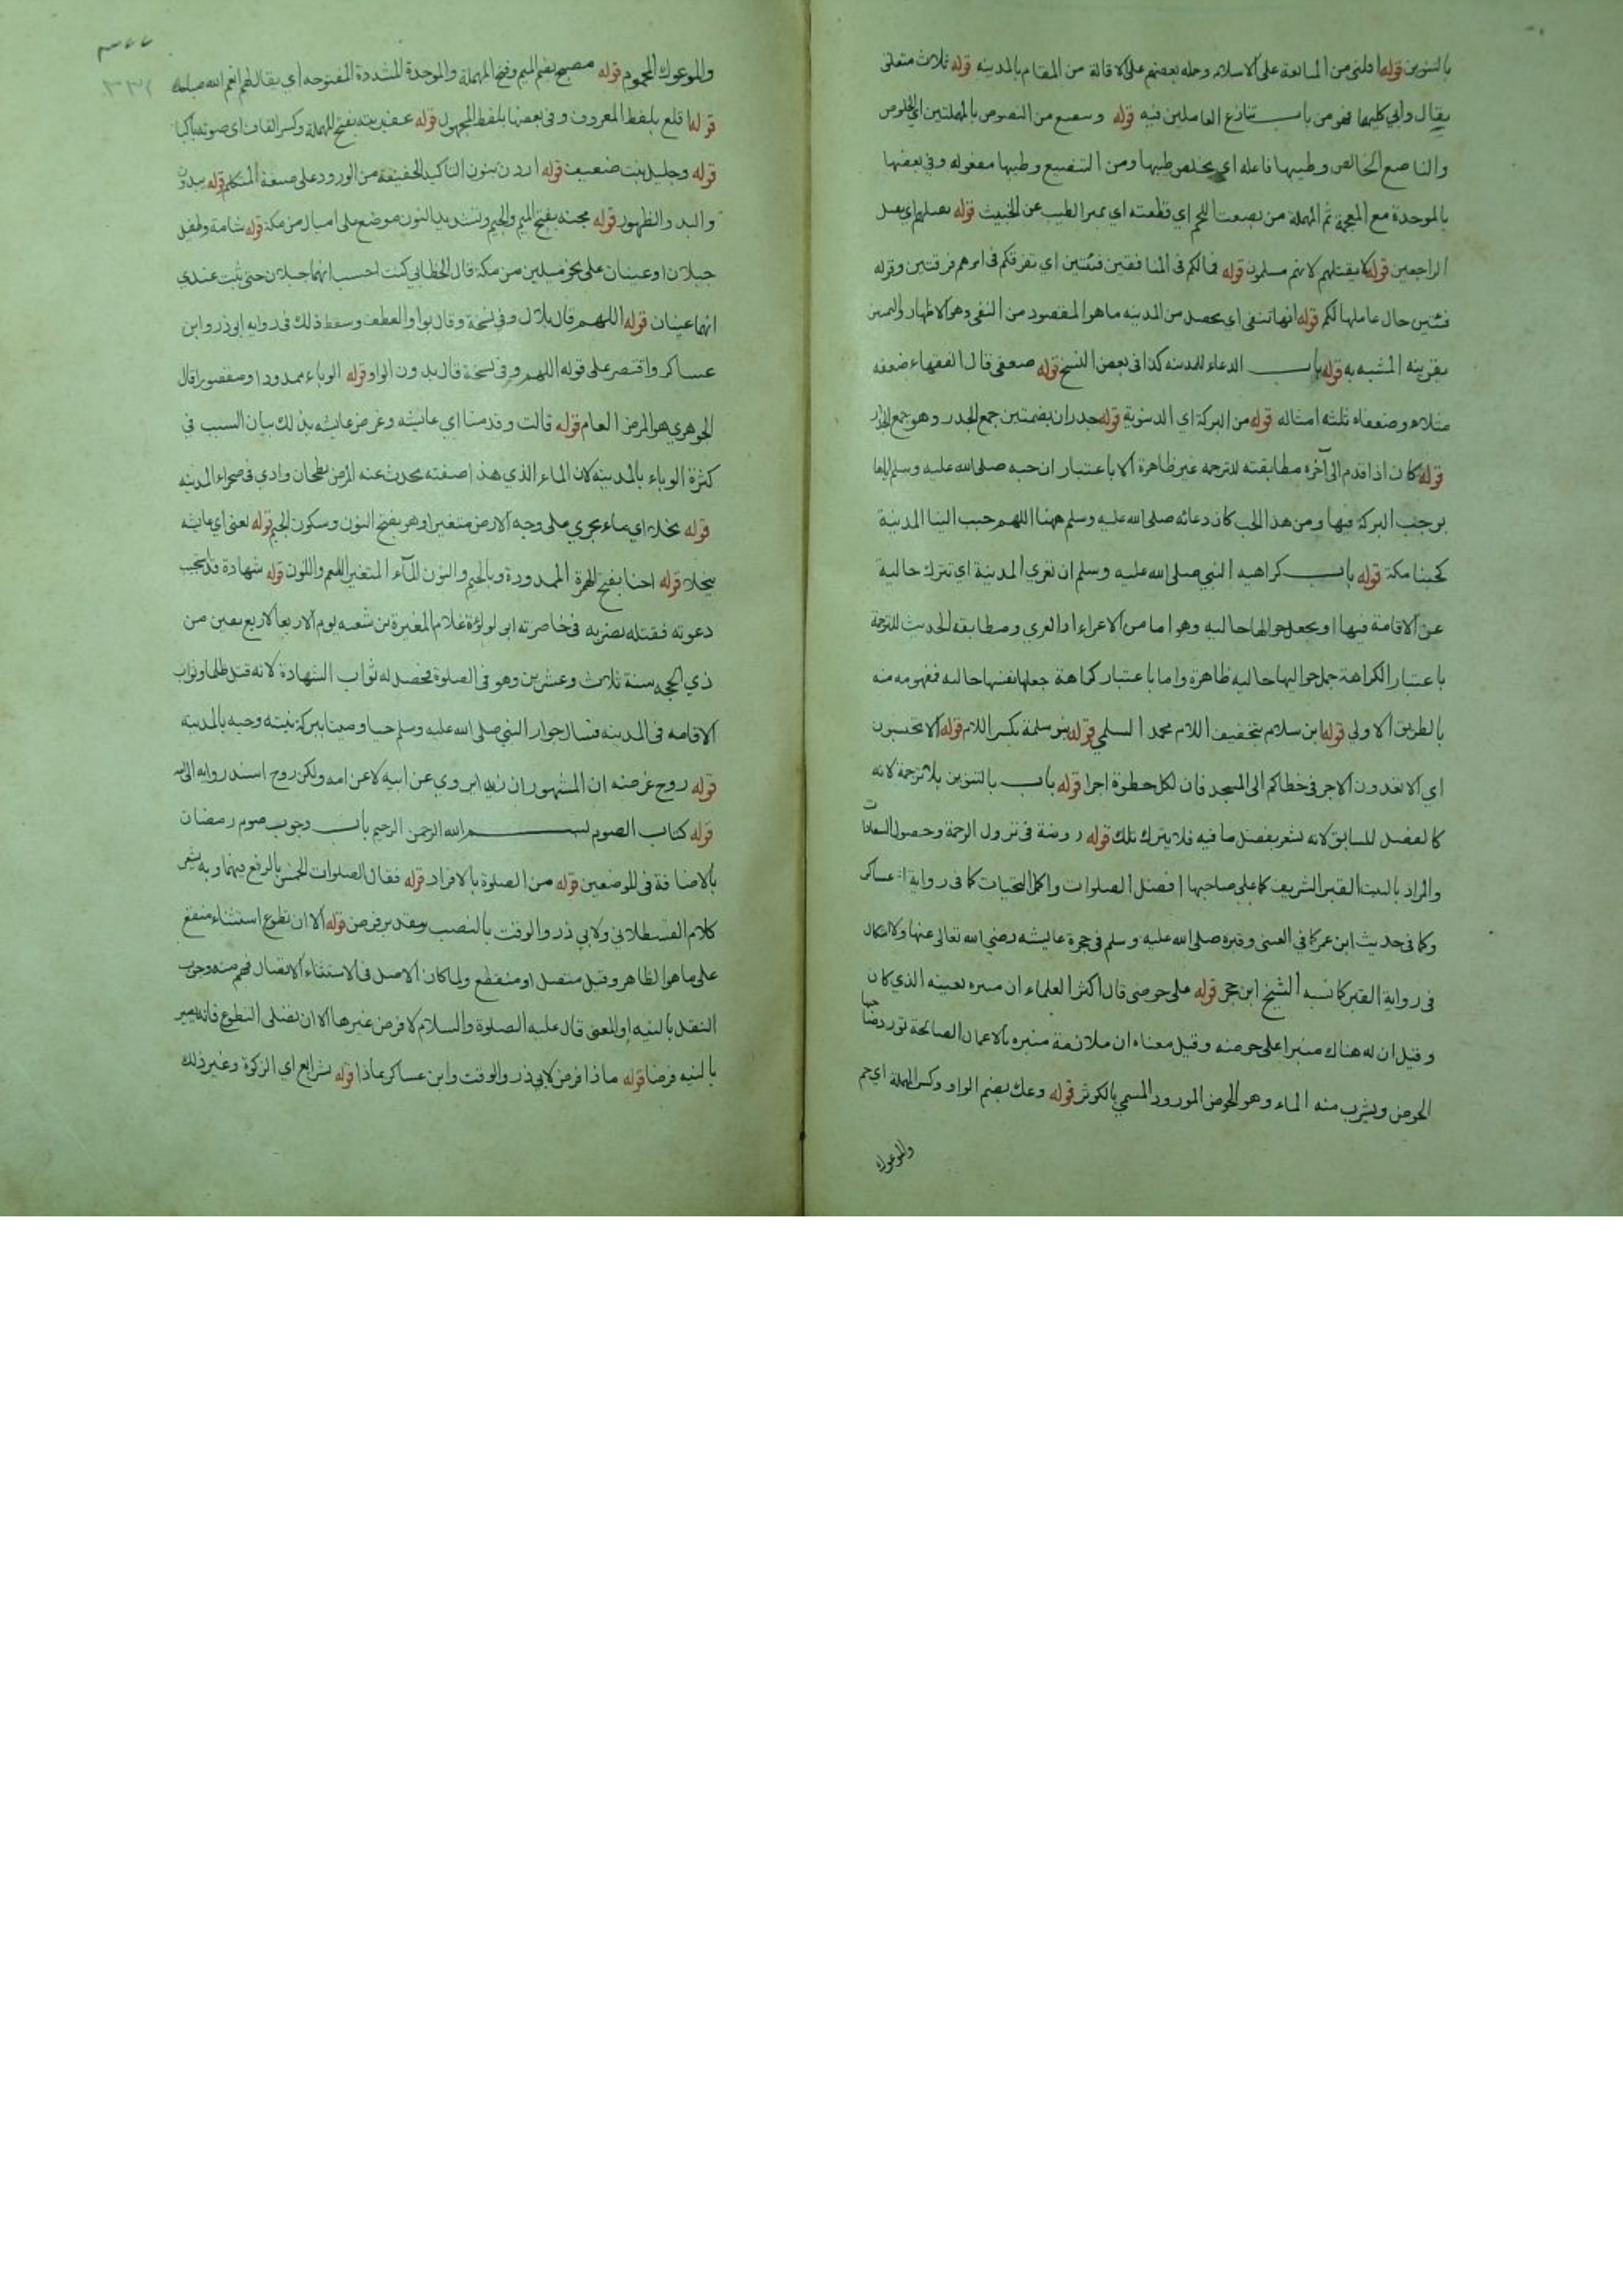 بالتنوين قوله اقلني من المبايعة على الاسلام وحمله بعضهم على الاقالة من المقام بالمدينه قوله ثلاث متعلق
بقال وأبي كليهما فهو من باب تنازع العاملين فيه قوله وينصع من النصوص بالمهملتين اي الخلوص
والناصع الخالص وطيبها فاعله اي يخلص طيبها ومن التنصيع وطيبها مفعوله وفي بعضها
بالموحدة مع المعجمة ثم المهملة من بضعت اللحم اي قطعته اي يميز الطيب عن الخبيث قوله
الراجعين قوله لا يقتلهم لانهم مسلمون قوله فمالكم في المنافقين فئتين اي تفرقكم في امرهم فرقتين وقوله
فئتين حال عاملها لكم قوله انها تنفي اي يحصل من المدينه ما هو المقصود من النفي وهو الاظهار والتمييز
بقرينه المشبه به قوله باب الدعاء للمدينه كذا في بعض النسخ قوله ضعفي قال الفقهاء ضعفه
مثلاه وضعفاه ثلثه امثاله قوله من البركة اي الدنيوية قوله جدران بضمتين جمع الجدر وهو جمع الجدار
قوله كان اذا قدم الى آخره مطابقته للترجمه غير ظاهرة الا باعتبار ان حبه صلى الله عليه وسلم اياها
يوجب البركة فيها ومن هذا الحب كان دعائه صلى الله عليه وسلم ههنا اللهم حبب الينا المدينة
كحبنا مكة قوله باب كراهيه النبي صلى الله عليه وسلم ان تعري المدينة اي تترك خالية
عن الاقامة فيها او يجعل حواليها خاليه وهو اما من الاعراء او العري ومطابقه الحديث للترجمة
باعتبار الكراهة جعل حواليها خاليه ظاهرة واما باعتبار كراهة جعلها نفسها خاليه فمفهومه منه
بالطريق الاولي قوله ابن سلام بتخفيف اللام محمد السلمي قوله بنو سلمة بكسر اللام قوله الا تحتسبون
اي الا تعدون الاجر في خطاكم الى المسجد فان لكل خطوة اجرا قوله باب بالتنوين بلا ترجمة لانه
كالفصل للسابق لانه يشعر بفضل ما فيه فلا يترك تلك قوله روضة في نزول الرحمة وحصول السعادات
والمراد بالبيت القبر الشريف كما على صاحبها افضل الصلوات واكمل التحيات كما في رواية ابن عساكر
وكما في حديث ابن عمر كما في العيني وقبره صلى الله عليه وسلم في حجرة عايشه رضي الله تعالى عنها ولا اشكال
في رواية القبر كما نسبه الشيخ ابن حجر قوله على حوضي قال اكثر العلماء ان منبره بعينه الذي كان
وقيل ان له هناك منبرا على حوضه وقيل معناه ان ملازمة منبره بالاعمال الصالحة تورد صاحبها
الحوض ويشرب منه الماء وهو الحوض المورود المسمي بالكوثر قوله وعك بضم الواو وكسر المهملة اي حم
والموعوك
٣٢٢
٣٣٢
والموعوك المحموم قوله مصبح بضم الميم وفتح المهملة والموحدة المشددة المفتوحه أي يقال لهم انعم الله صباحه
قوله اقلع بلفظ المعروف وفي بعضها بلفظ المجهول قوله عقيرته بفتح المهملة وكسر القاف اي صوته باكيا
قوله وجليل نبت ضعيف قوله اردن بنون التاكيد الخفيفة من الورود على صيغة المتكلم قوله يبدون
والبدو الظهور قوله مجنه بفتح الميم والجيم وتشديد النون موضع على اميال من مكة قوله شامة وطفيل
جبلان او عينان على نحو ميلين من مكة قال الخطابي كنت احسب انهما جبلان حتى ثبت عندي
انهما عينان قوله اللهم قال بلال وفي نسخة وقال بواو العطف وسقط ذلك في روايه ابي ذر وابن
عساكر واقتصر على قوله اللهم وفي نسخة قال بدون الواو قوله الوباء ممدودا ومقصورا قال
الجوهري هو المرض العام قوله قالت وقدمنا اي عائشه وغرض عايشه بذلك بيان السبب في
كثرة الوباء بالمدينه لان الماء الذي هذا صفته يحدث عنه المرض بطحان وادي في صحراء المدينه
قوله نجلا اي ماء يجري على وجه الارض متغيرا وهو بفتح النون وسكون الجيم قوله تعني اي عايشه
بنجلا قوله اجنا بفتح الهمزة الممدودة وبالجيم والنون الماء المتغير الطعم واللون قوله شهادة فاستجيب
دعوته فقتله بضربه في خاصرته ابي لولؤة غلام المغيرة بن شعبه يوم الاربعا لاربع بقين من
ذي الحجه سنة ثلاث وعشرين وهو في الصلوة فحصل له ثواب الشهادة لانه قتل ظلما وثواب
الاقامه في المدينه فنال جوار النبي صلى الله عليه وسلم حيا وميتا ببركة نيته وحبه بالمدينه
قوله روح غرضه ان المشهور ان زيدا يروي عن ابيه لا عن امه ولكن روح اسند روايه الى امه
قوله كتاب الصوم بسم الله الرحمن الرحيم باب وجوب صوم رمضان
بالاضافة في الموضعين قوله من الصلوة بالافراد قوله فقال الصلوات الخمس بالرفع فيهما وبه يشعر
كلام القسطلاني ولابي ذر والوقت بالنصب بتقدير فرض قوله الا ان تطوع استثناء منقطع
على ما هو الظاهر وقيل متصل او منقطع ولما كان الاصل في الاستثناء الاتصال فهم منه وجوب
النفل بالنيه او المعنى قال عليه الصلوة والسلام لا فرض غيرها الا ان تصلى التطوع فانه يصير
بالنيه فرضا قوله ماذا فرض لابي ذر والوقت وابن عساكر بماذا قوله شرائع اي الزكوة وغير ذلك